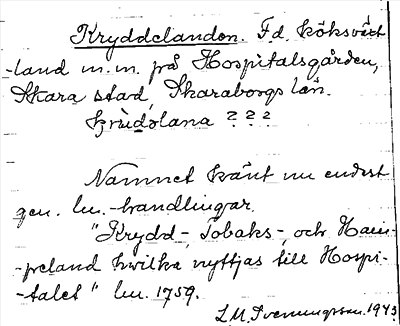 Kryddelanden. F.d. köksväxt
-land m.m. på Hospitalsgården,
Skara stad, Skaraborgs län.
? ? ?
Namnet känt nu endast
gen. lm. -handlingar.
"Krydd-, Tobaks-, och Ham-
-peland hvilka nyttjas till Hospi-
-talet" lm. 1759.
L. M. Svenungsson. 1943.